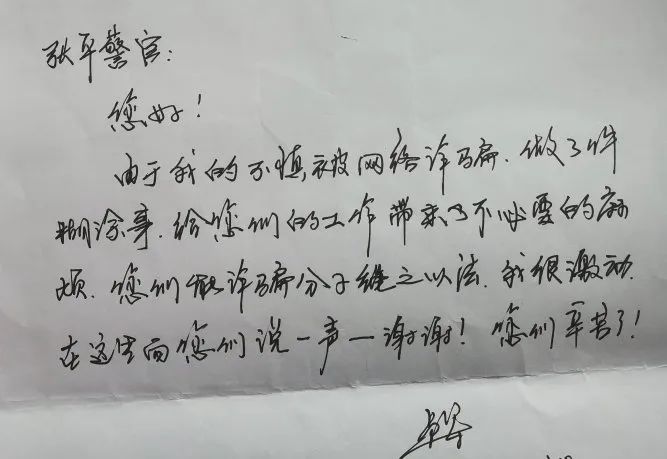 张平警官：
您好！
由于我的不慎，被网络诈骗.做了件
糊涂事.给您们的工作带来了不必要的麻
烦.您们能诈骗分子绳之以法.我很激动.
在这里向您们说一声—谢谢！您们辛苦了！